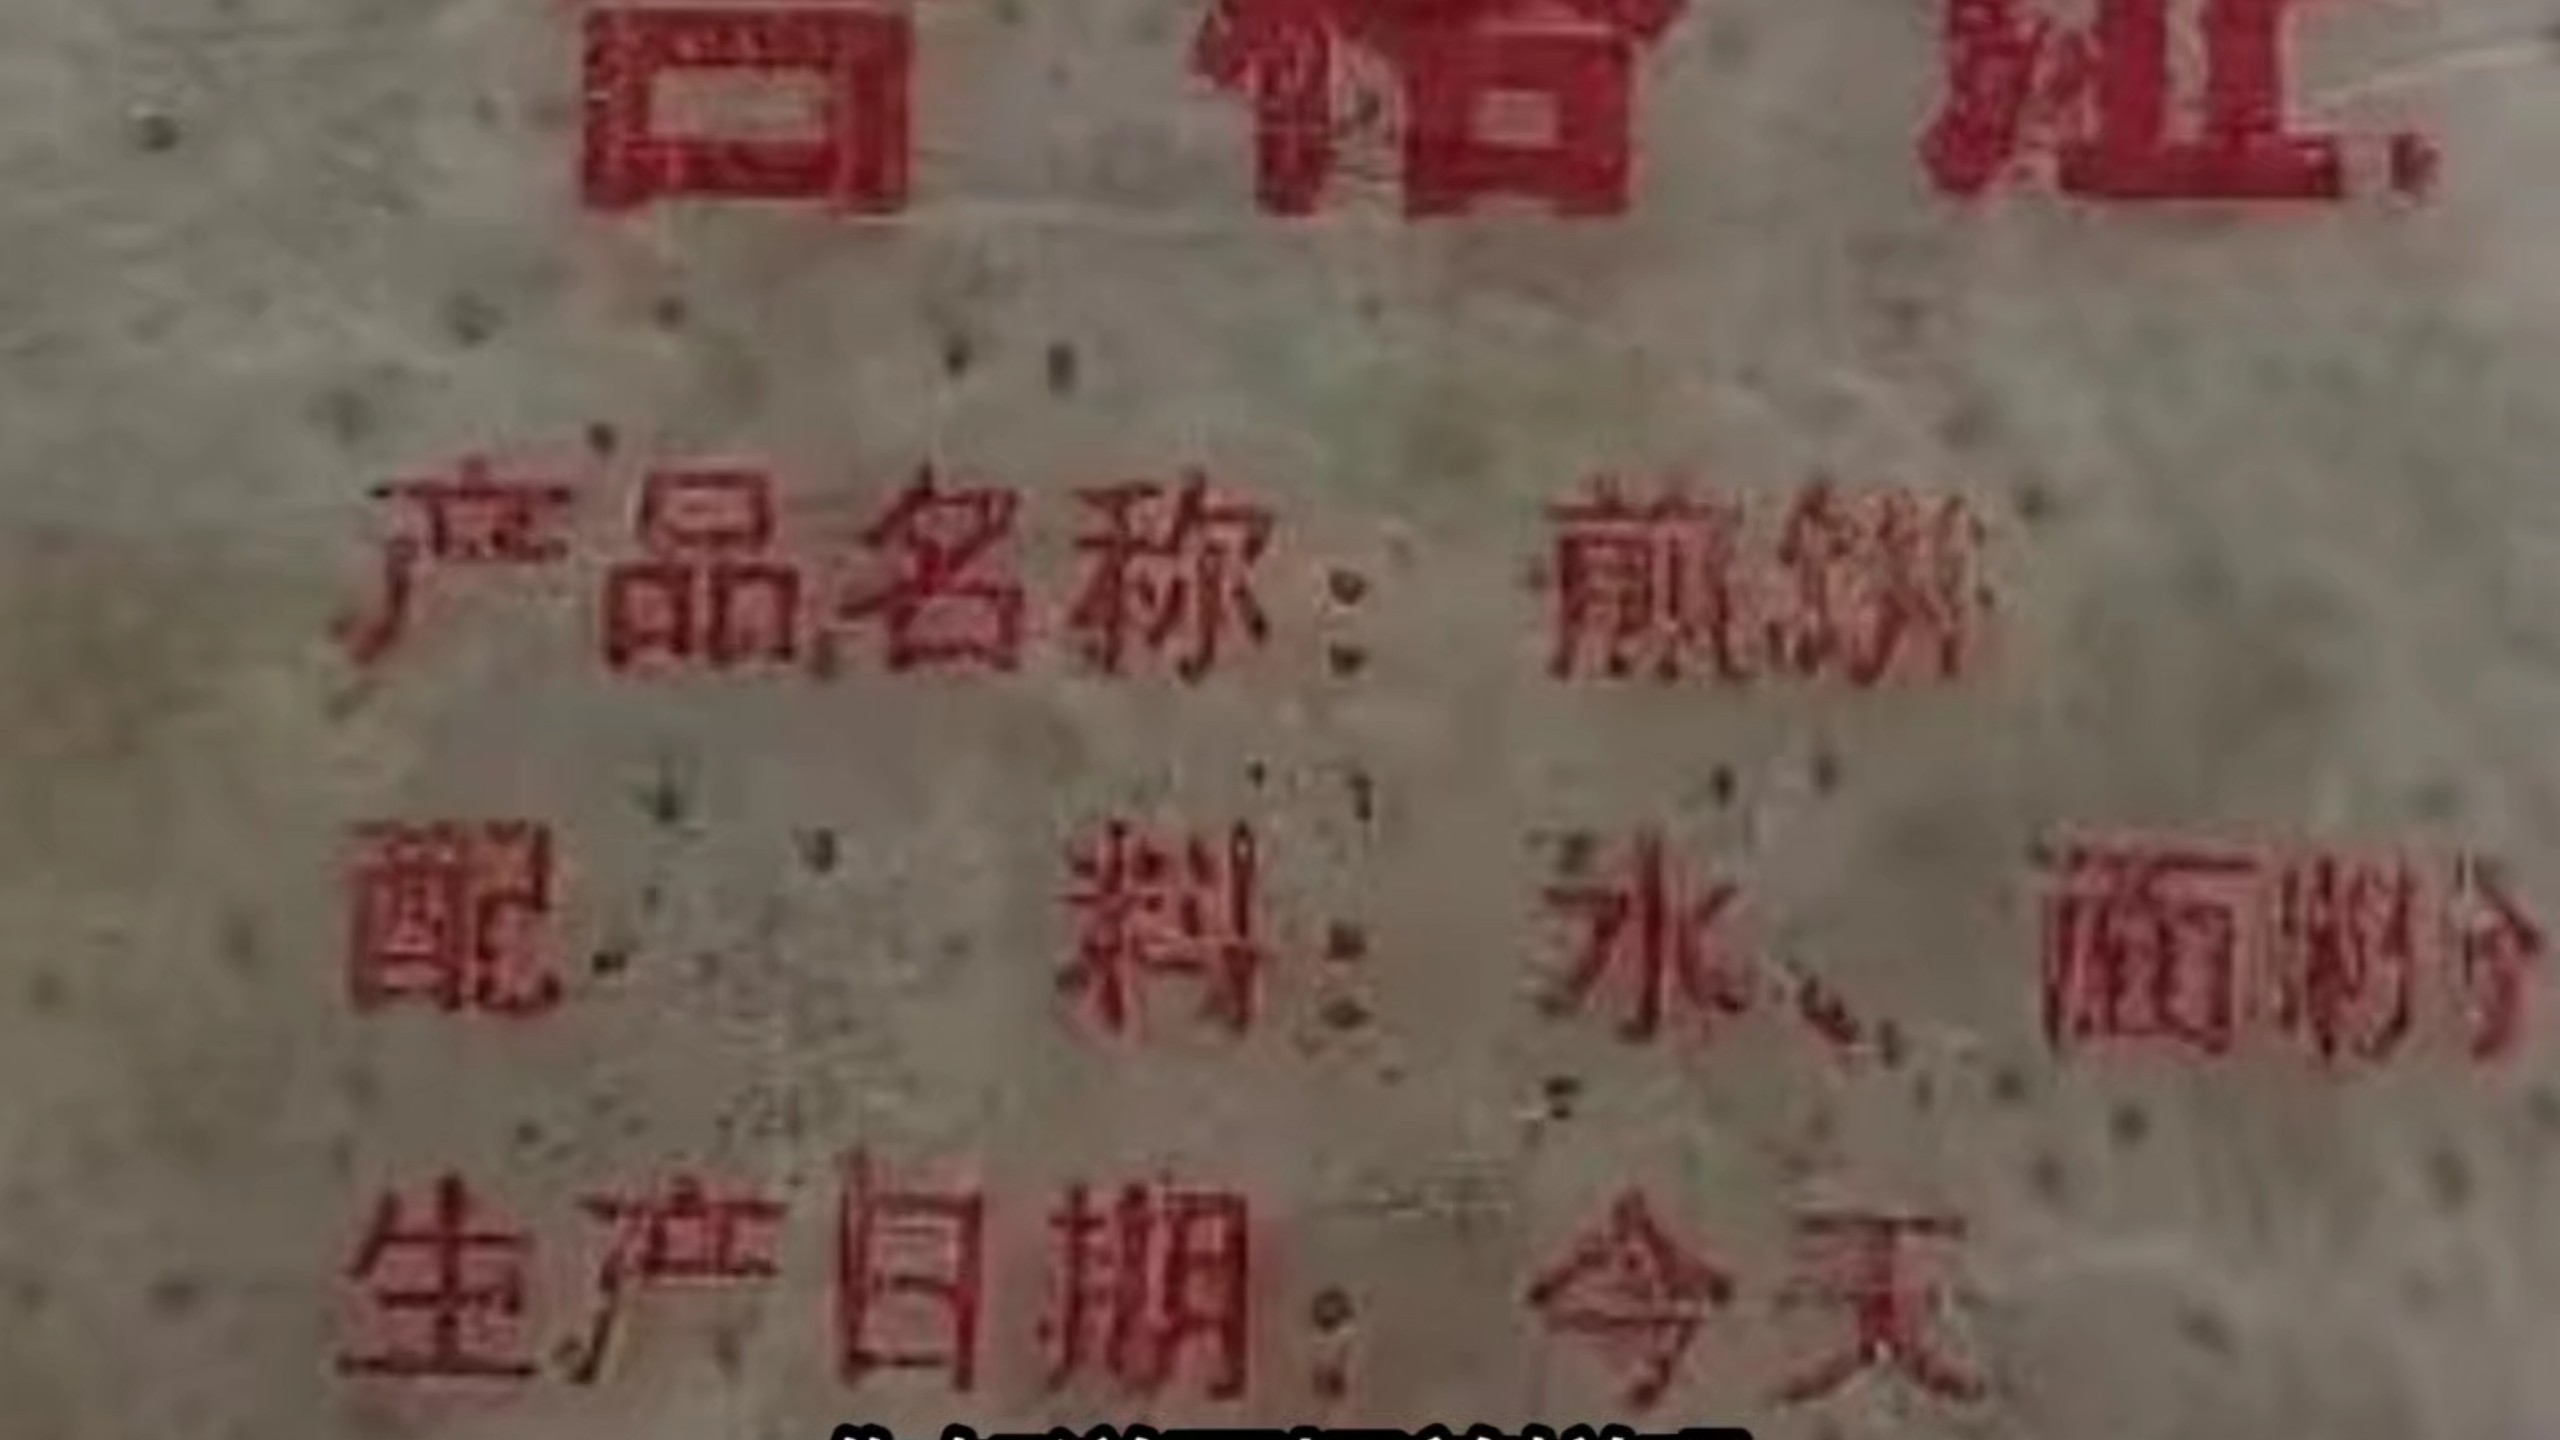 合格证
产品名称：煎饼
配 料：水、面粉
生产日期：今天